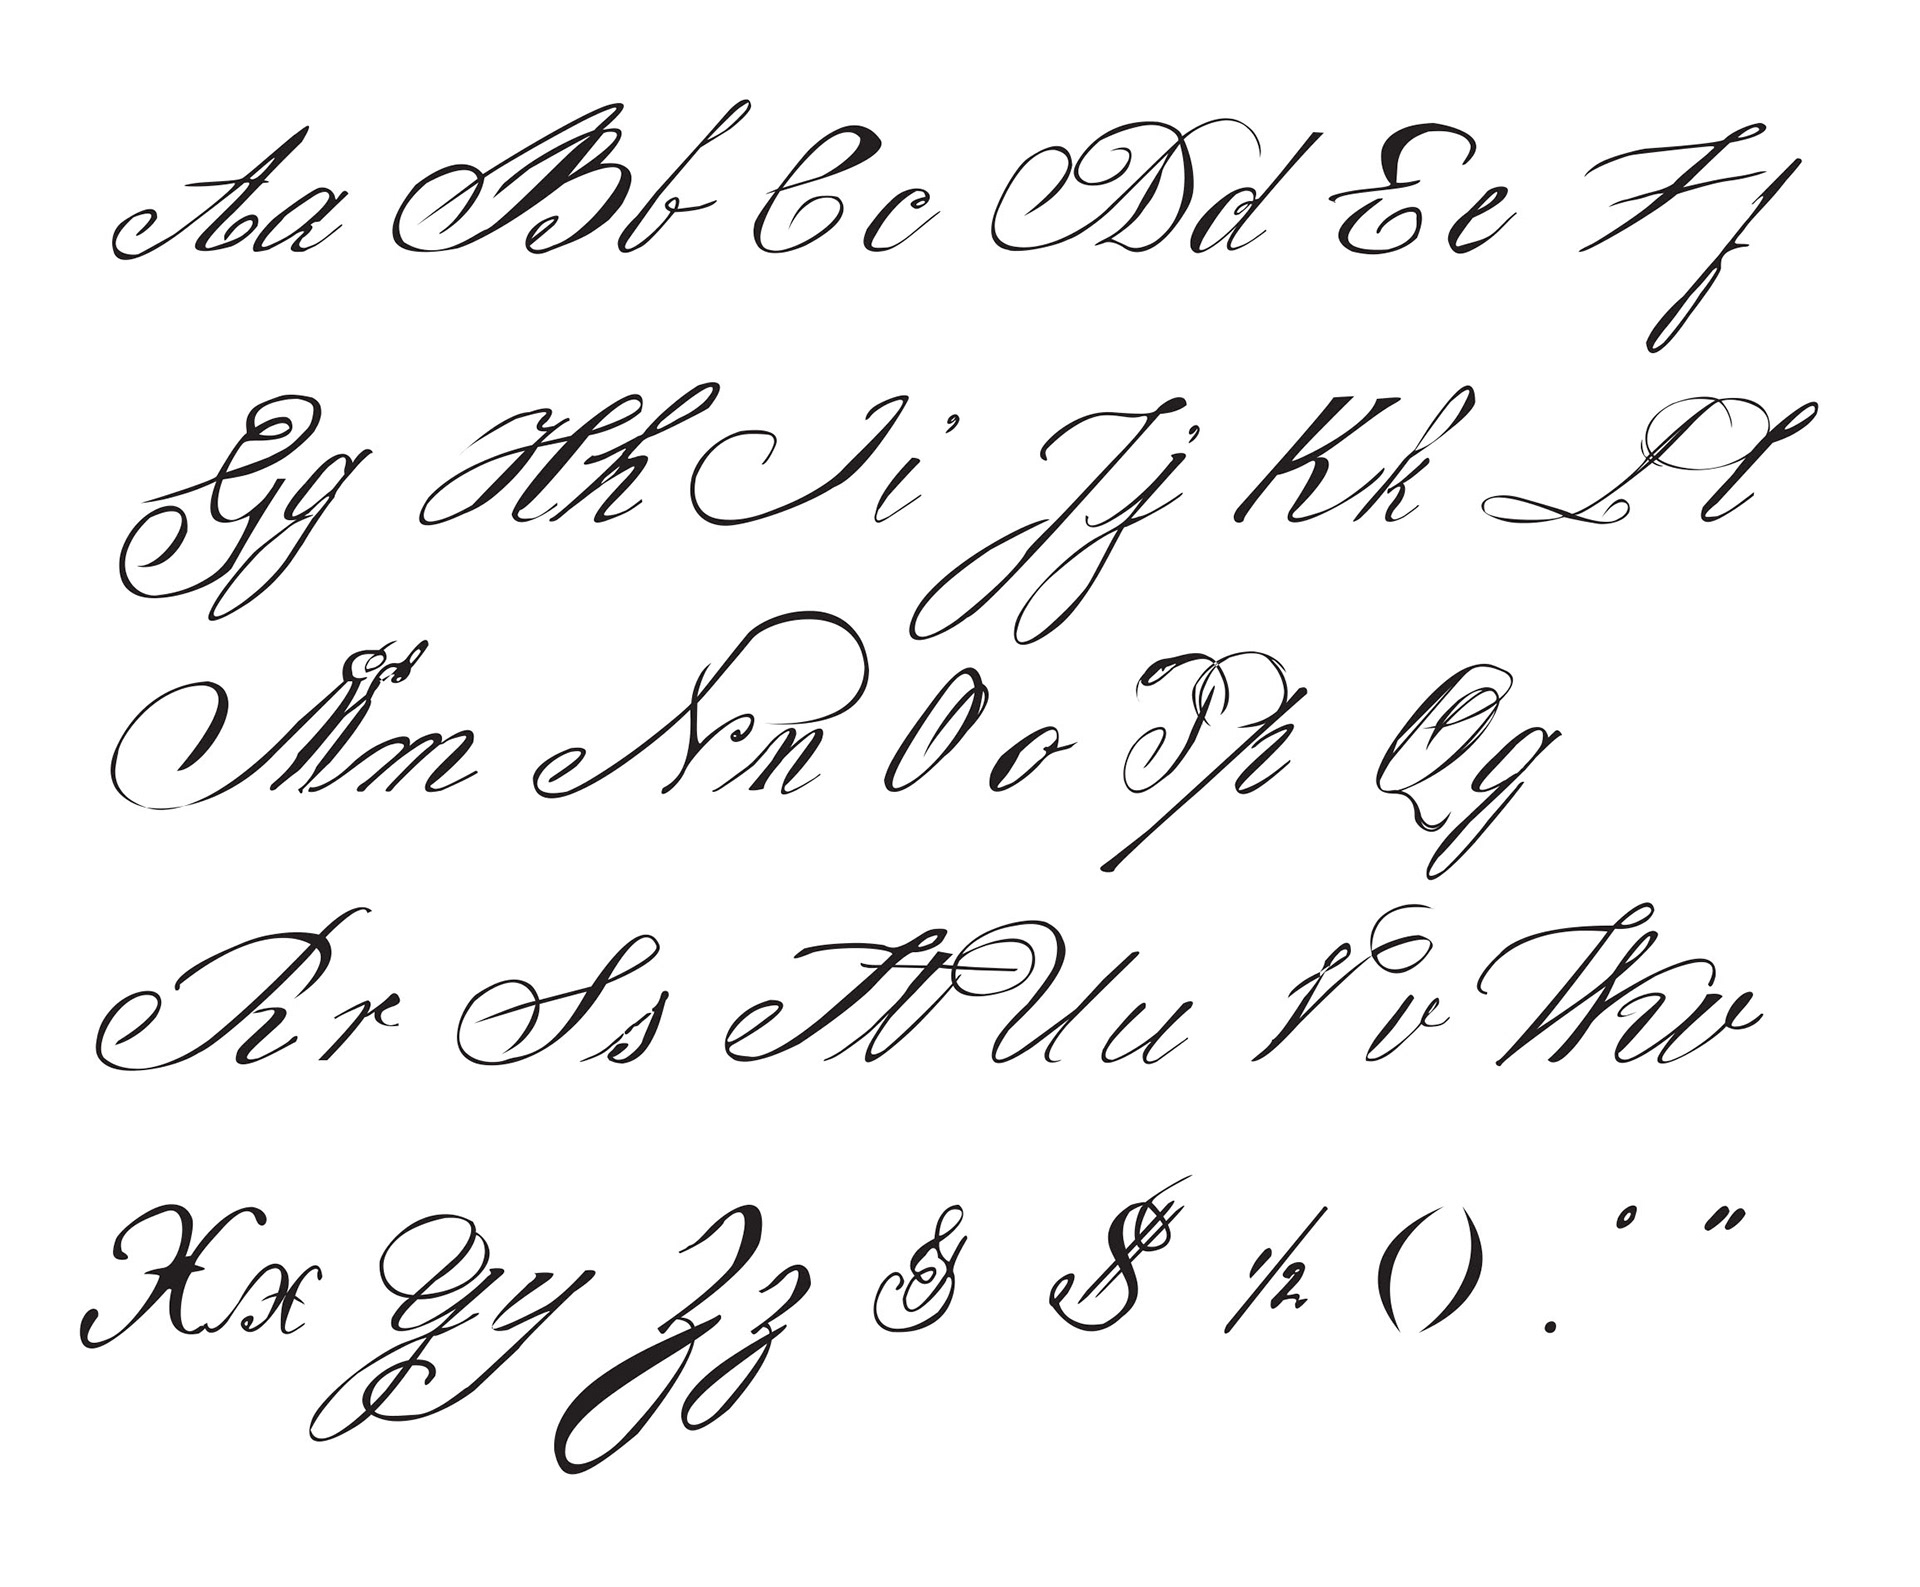 Aa Bb Cc Dd Ee Ff
Gg Hh Ii Jj Kk Ll
Mm Nn Oo Pp Qq
Rr Ss Tt Uu Vv Ww
Xx Yy Zz & $ ½ () . ° "